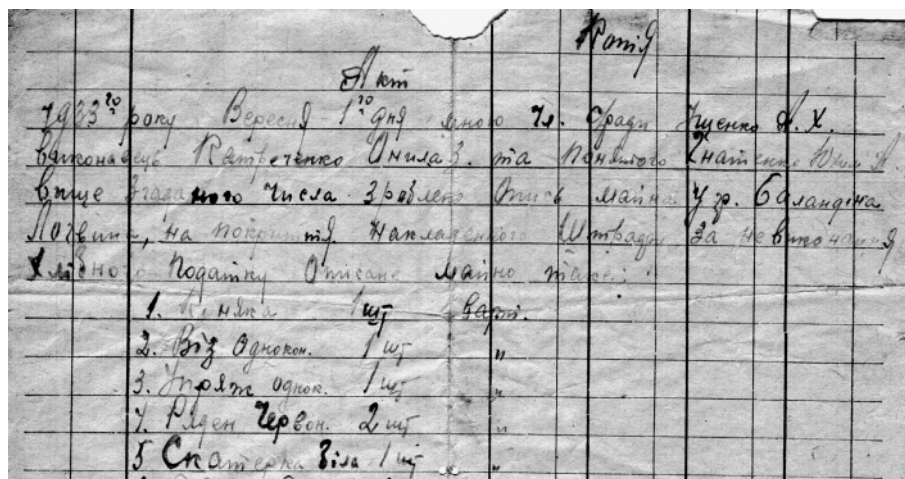 Копія
Акт
1933го року Вересня 1го дня мною Чл. С/ради Іщенко А. Х.
виконавець Онила З. та понятого Гнатенко Юхим А.
вище згаданого числа зроблено Опись майна у гр. Баландіна
Логвина, на покриття накладенного Штрафу за не виконання
Хлібного податку Описане майно таке:
1. Коняка 1 шт варт.
2. Віз однокон. 1 шт "
3. Упряж однок. 1 шт "
4. Ряден Червон. 2 шт "
5 Скатерка Біла 1 шт "